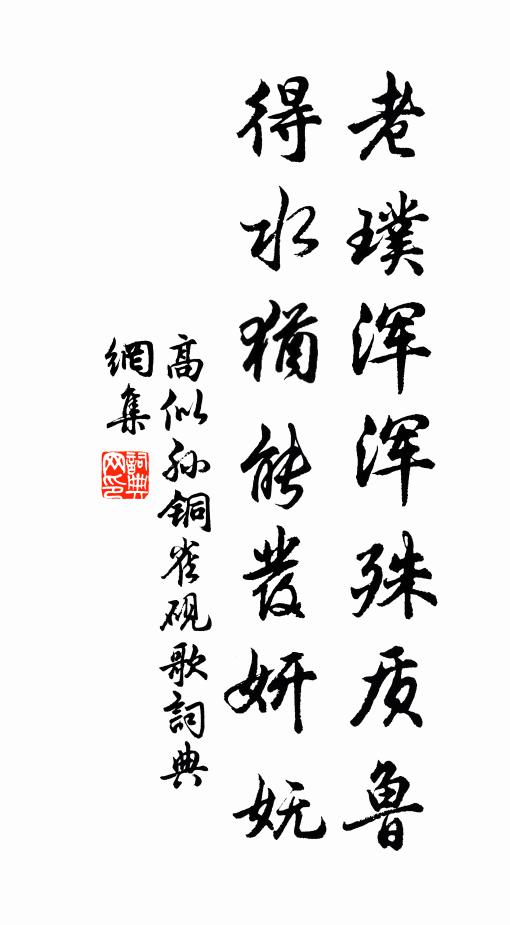 老璞浑浑殊质鲁
得水猶能發妍妩
高似孙铜雀砚歌詞典
網集
詞典网印